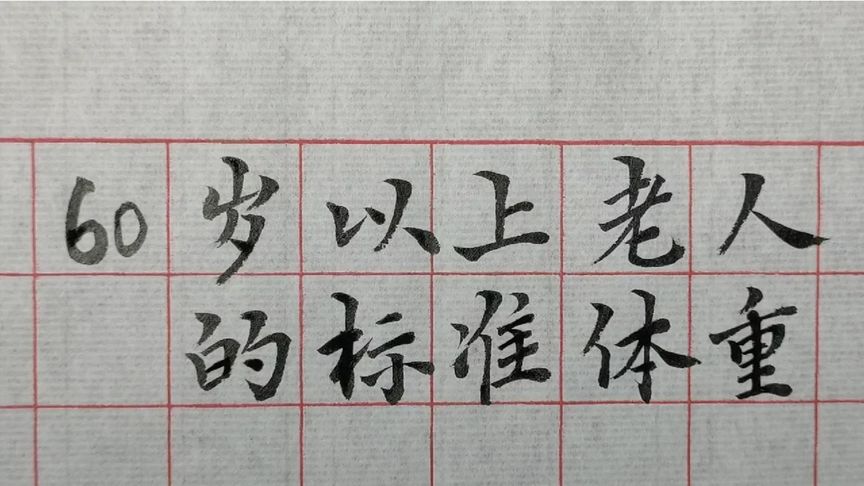 60岁以上老人
的标准体重